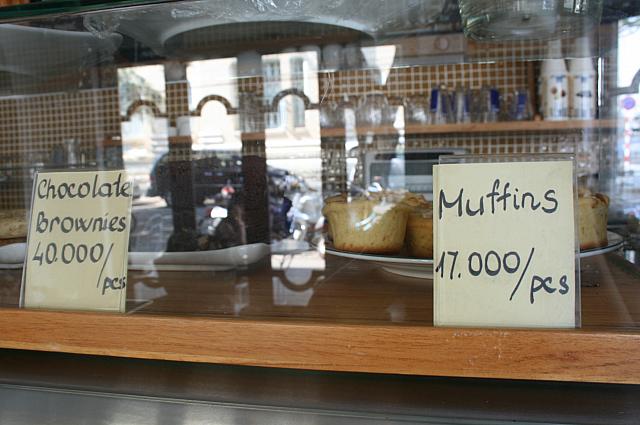 Chocolate
Brownies
40.000/pcs
Muffins
17.000/pcs